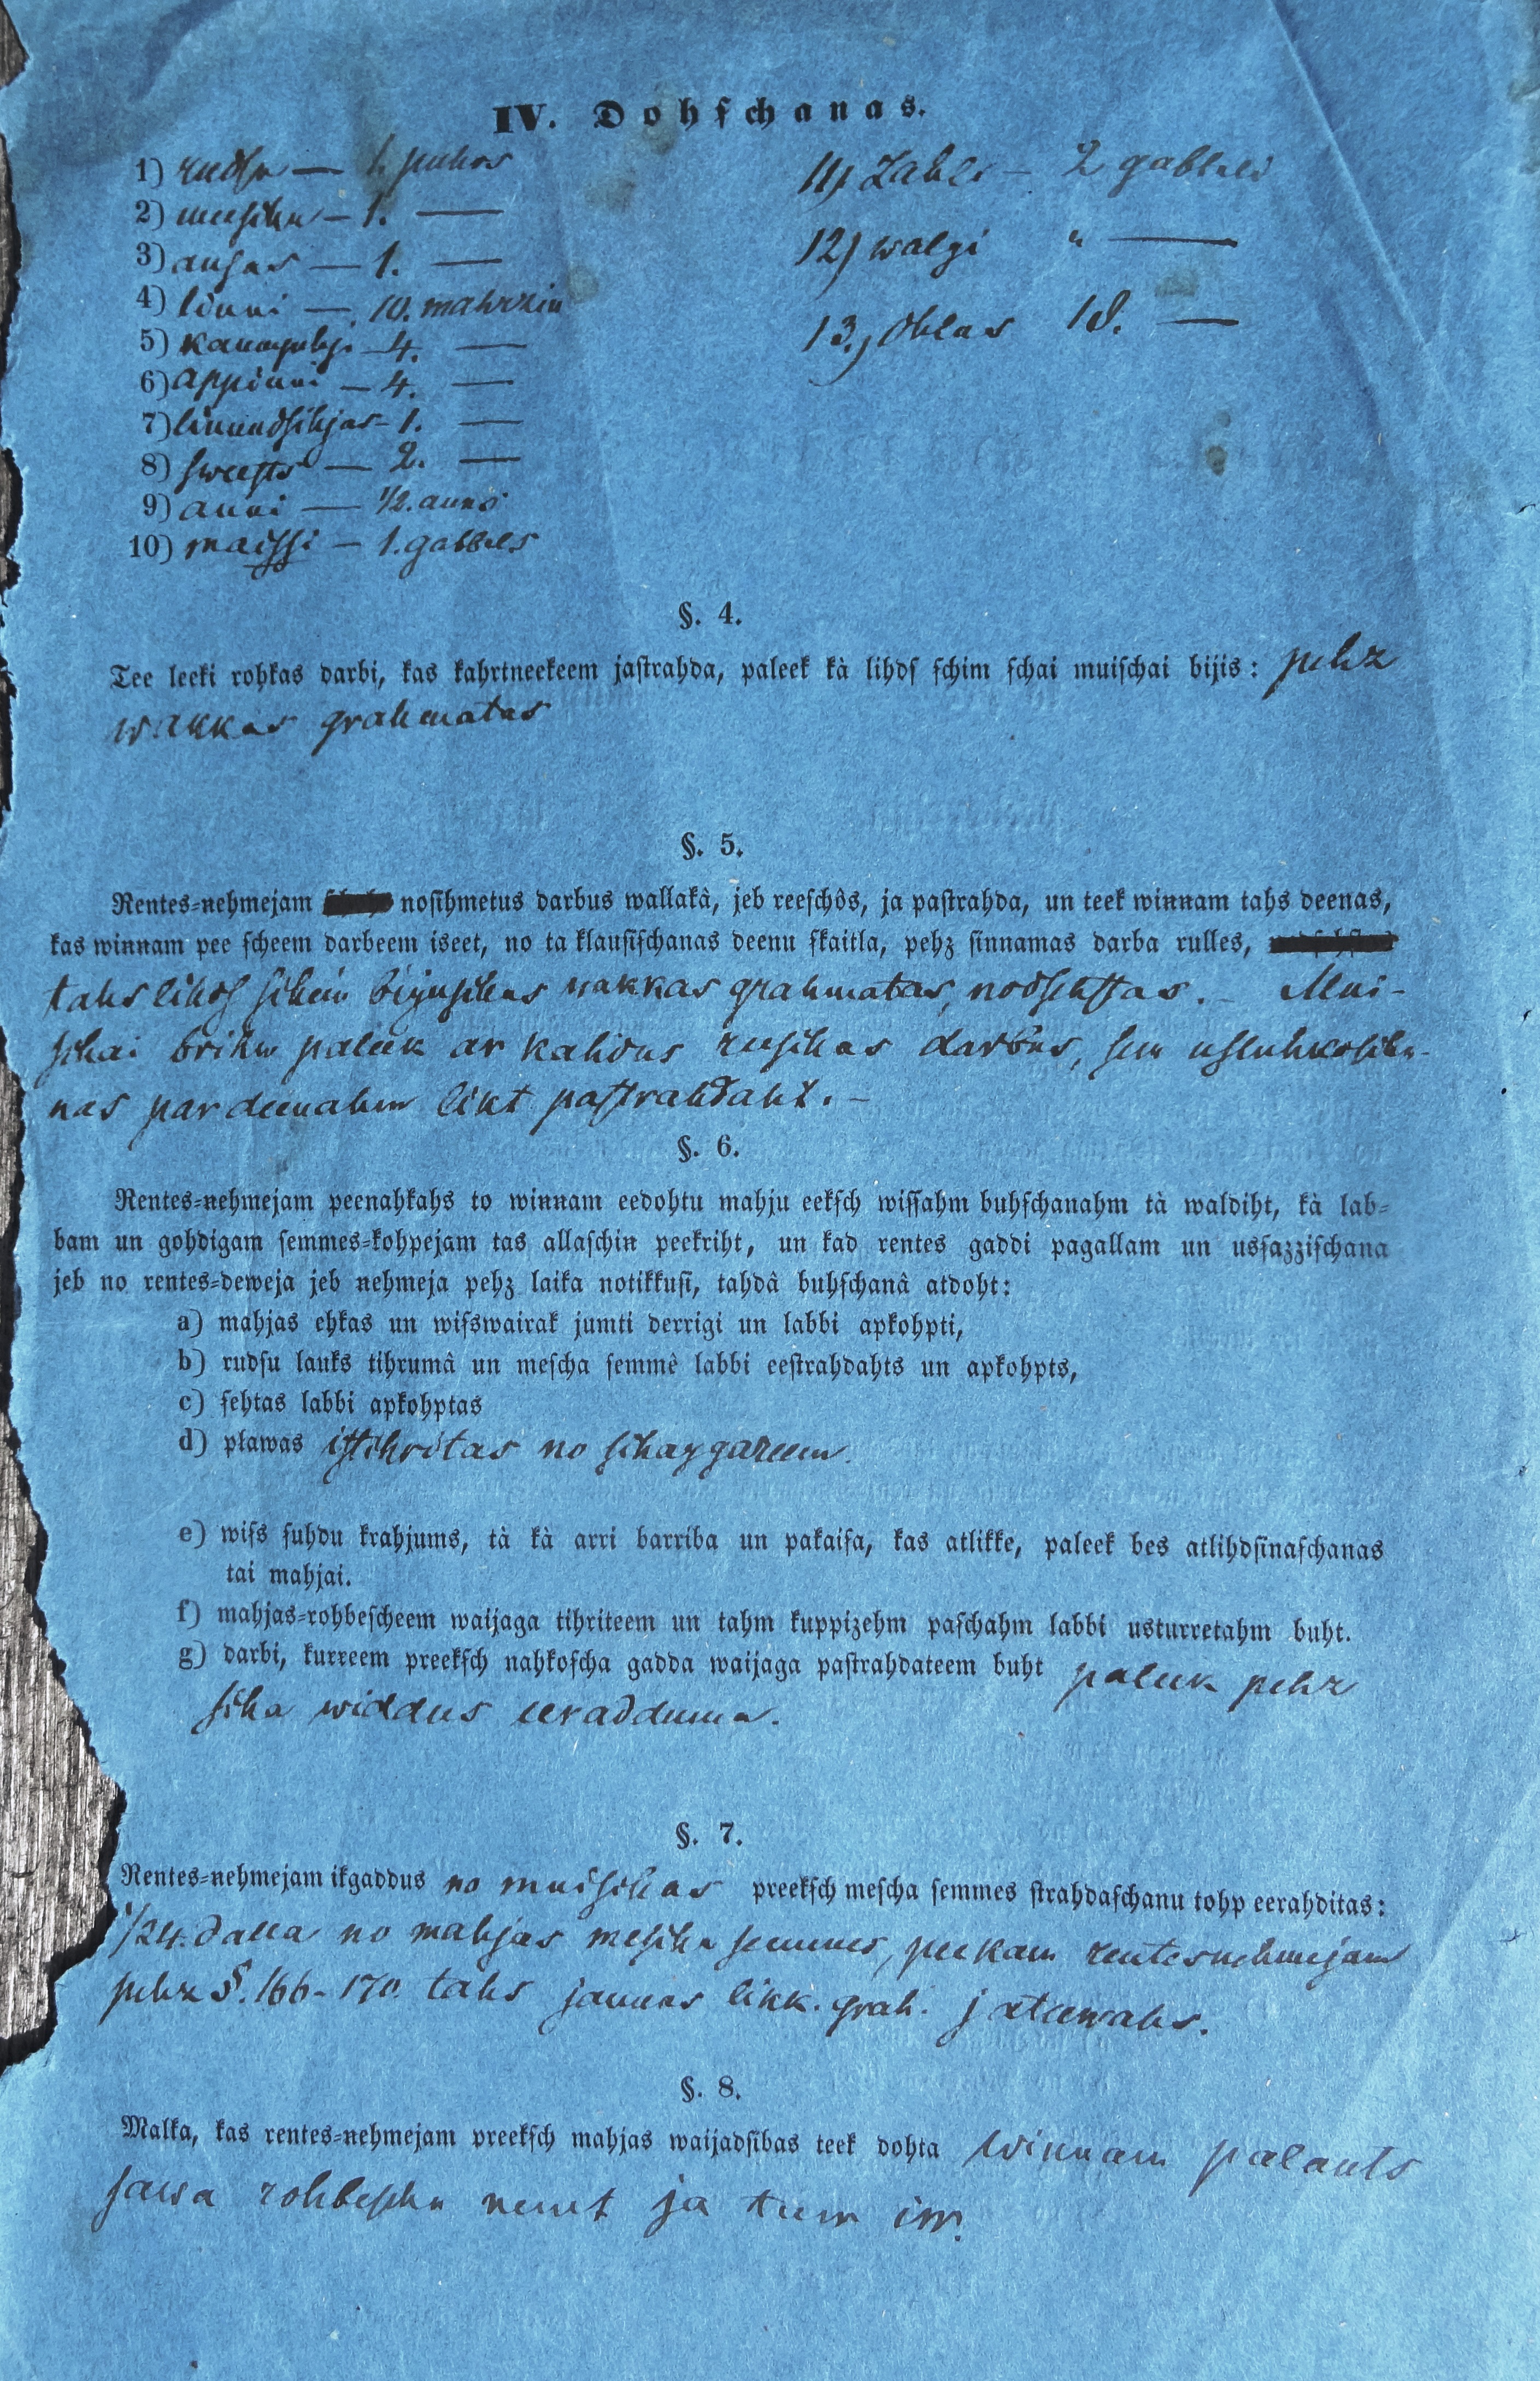 IV. Dohſchanas.
1) rudſu — 1. puhrs
2) meeſchu — 1. —
3) auſas — 1. —
4) linni — 10. mahrzin
5) — 4. —
6) appinni — 4. —
7) — 1. —
8) ſweeſts — 2. —
9) auni — 1/2. auns
10) maiſſi — 1. gabbals
11) Zahli — 2 gabbali
12) walgi " —
13.) Ohlas 18. —
§. 4.
Tee leeki rohkas darbi, kas kahrtneekeem jaſtrahda, paleek kà lihdſ ſchim ſchai muiſchai bijis: pehz
wakkas grahmatas
§. 5.
Rentes-nehmejam noſihmetus darbus wallakâ, jeb reeſchôs, ja paſtrahda, un teek winnam tahs deenas,
kas winnam pee ſcheem darbeem iseet, no ta klauſiſchanas deenu ſkaitla, pehz ſinnamas darba rulles,
tahs lihdſ ſchim bijuſchas wakkas grahmatas, nodſehſtas. — Mui-
ſchai brihw paleek ar kahdus reeſchas darbus, ſew
nas par deenahm likt paſtrahdaht. —
§. 6.
Rentes-nehmejam peenahkahs to winnam eedohtu mahju eekſch wiſſahm buhſchanahm tà waldiht, kà lab-
bam un gohdigam ſemmes-kohpejam tas allaſchin peekriht, un kad rentes gaddi pagallam un usſazziſchana
jeb no rentes-deweja jeb nehmeja pehz laika notikkuſi, tahdâ buhſchanâ atdoht:
a) mahjas ehkas un wiſswairak jumti derrigi un labbi apkohpti,
b) rudſu lauks tihrumâ un meſcha ſemmê labbi eeſtrahdahts un apkohpts,
c) ſehtas labbi apkohptas
d) pļawas iſtihritas no ſchaggareem.
e) wiſs ſuhdu krahjums, tà kà arri barriba un pakaiſa, kas atlikke, paleek bes atlihdſinaſchanas
tai mahjai.
f) mahjas-rohbeſcheem waijaga tihriteem un tahm kuppizehm paſchahm labbi usturretahm buht.
g) darbi, kurreem preekſch nahkoſcha gadda waijaga paſtrahdateem buht paleek pehz
ſcha widdus eeradduma.
§. 7.
Rentes-nehmejam ikgaddus no muiſchas preekſch meſcha ſemmes ſtrahdaſchanu tohp eerahditas:
1/24. dalla no mahjas meſcha ſemmes, pee kam rentesnehmejam
pehz §. 166-170. tahs jaunas likk. grah. jaturrahs.
§. 8.
Malka, kas rentes-nehmejam preekſch mahjas waijadſibas teek dohta winnam palauts
ſawa rohbeſchu nemt ja tur irr.